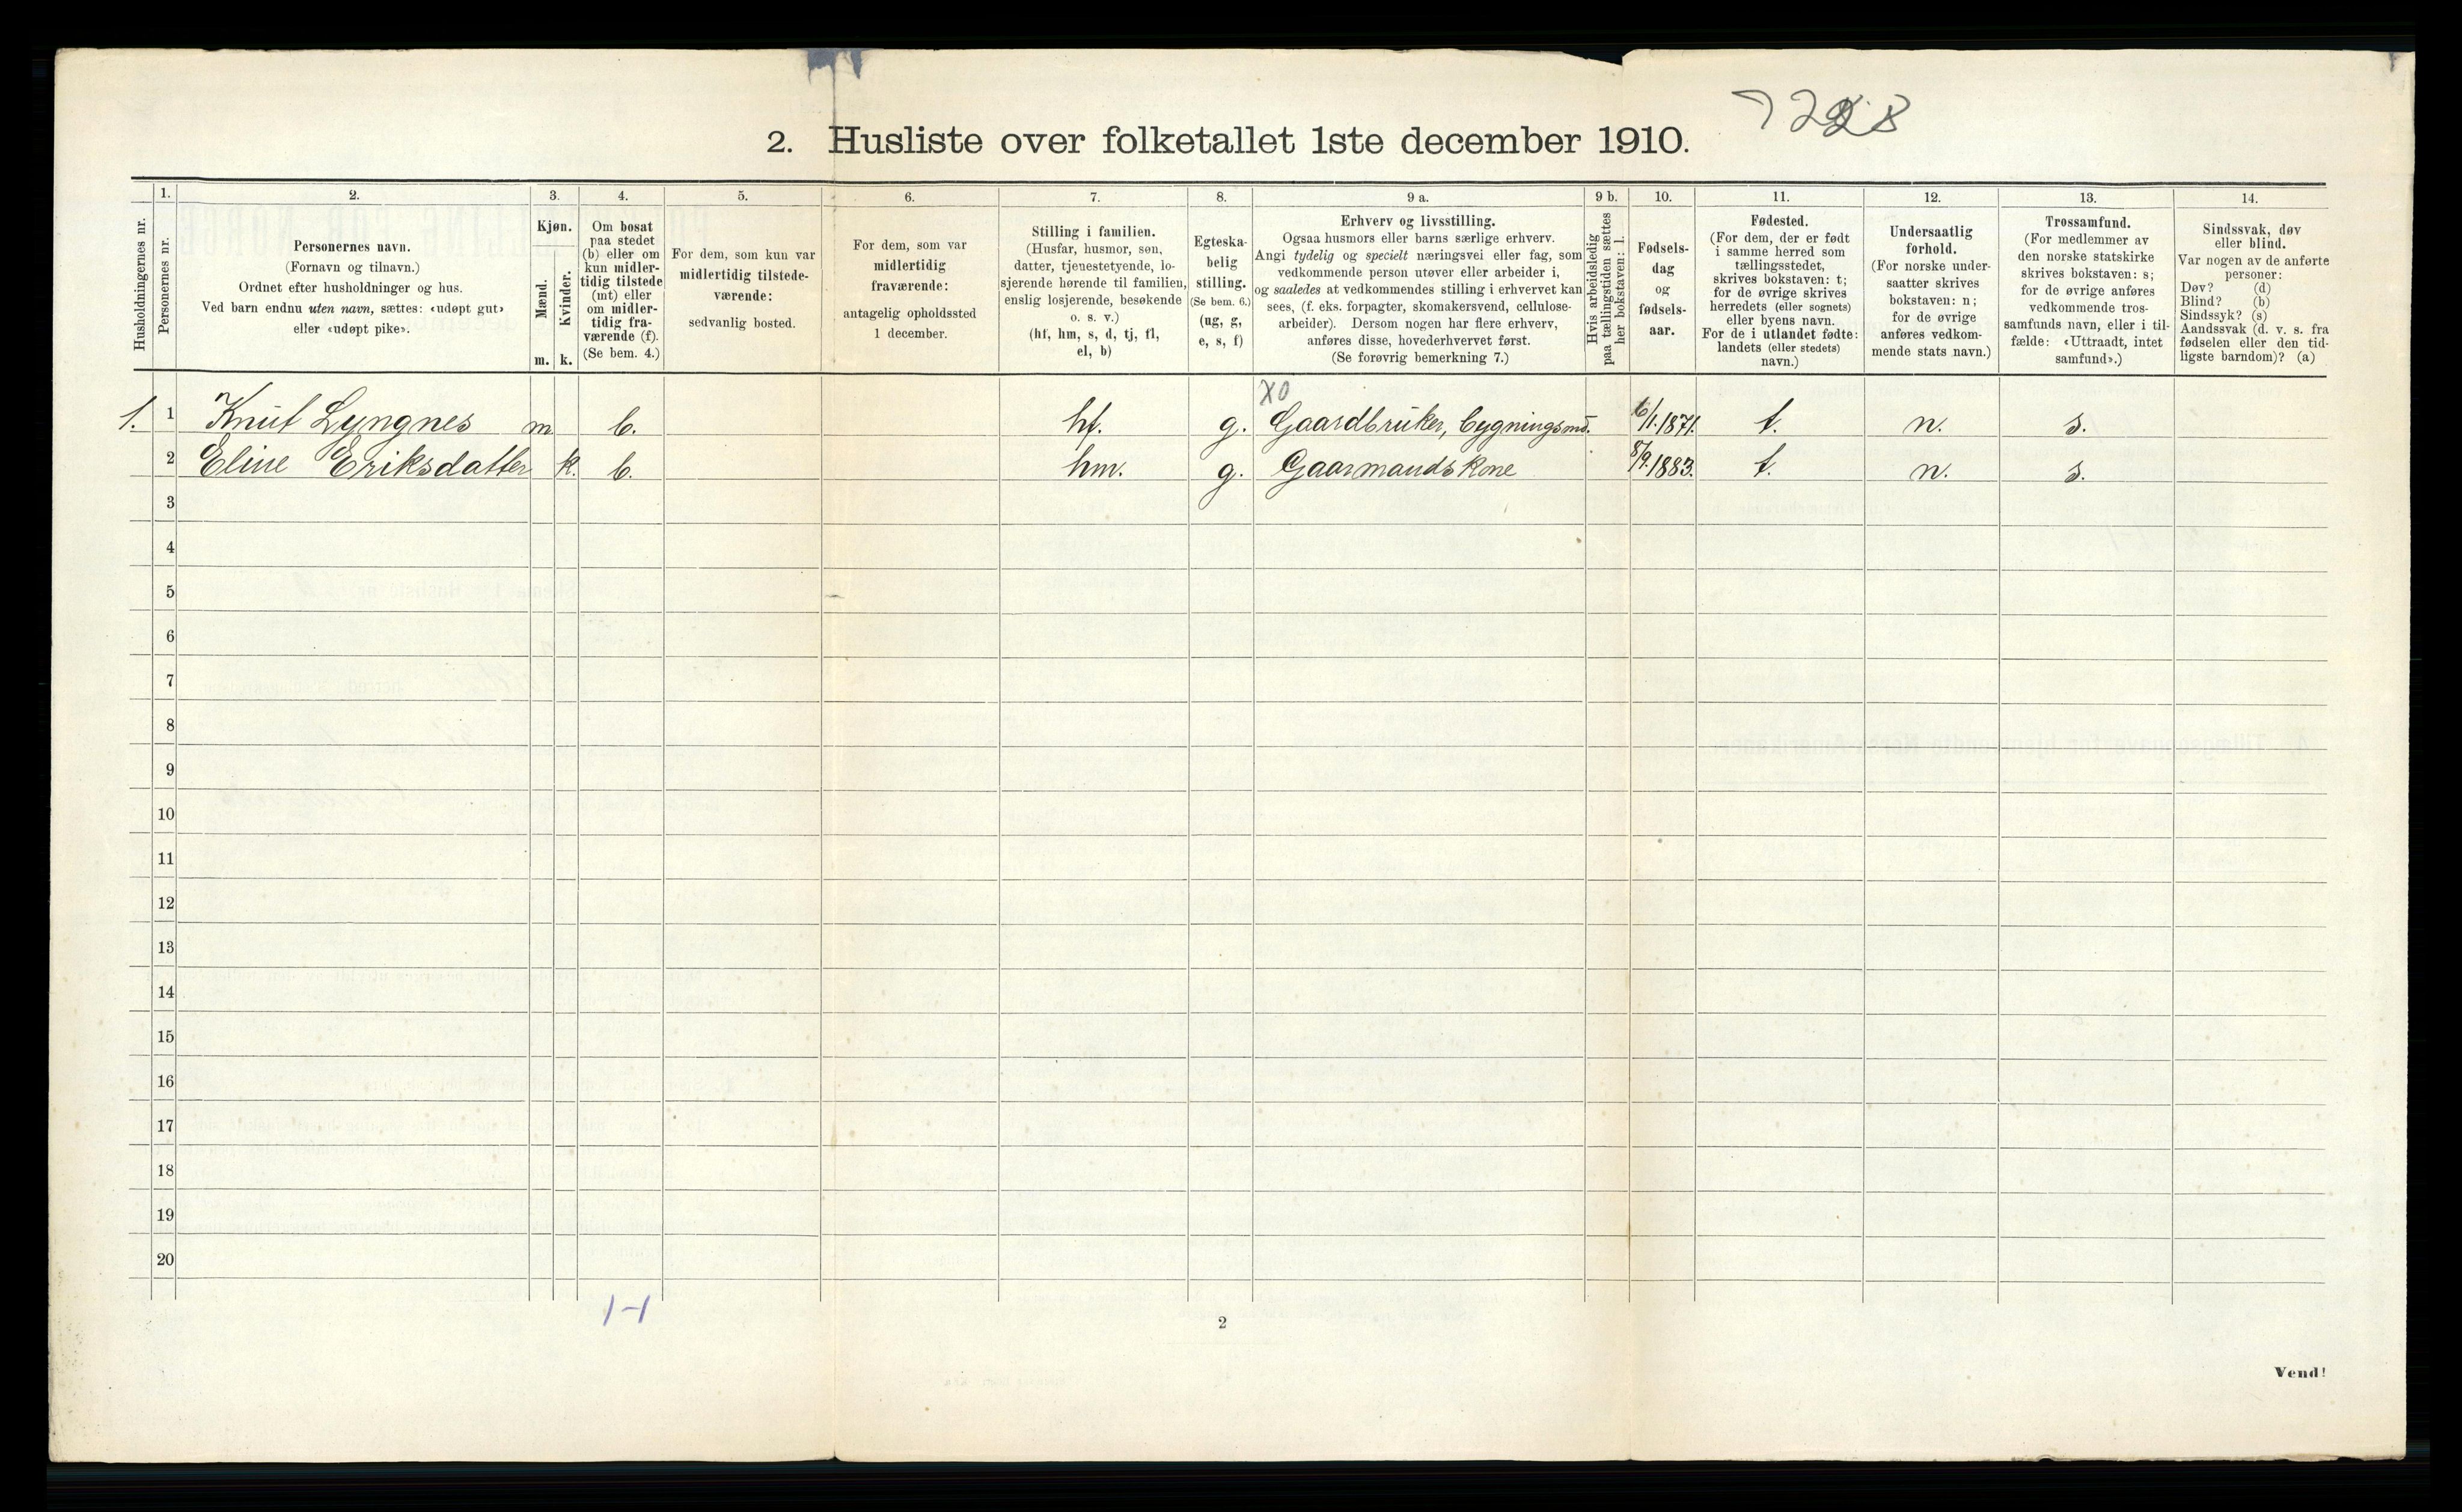 2. Husliste over folketallet 1ste december 1910.
1. 2. 3. 4. 5. 6. 7. 8. 9 a. 9 b. 10. 11. 12. 13. 14.
Husholdningernes nr.
Personernes nr.
Personernes navn.
(Fornavn og tilnavn.)
Ordnet efter husholdninger og hus.
Ved barn endnu uten navn, sættes: «udøpt gut»
eller «udøpt pike».
Kjøn.
Mænd.
Kvinder.
m. k.
Om bosat
paa stedet
(b) eller om
kun midler-
tidig tilstede
(mt) eller
om midler-
tidig fra-
værende (f).
(Se bem. 4.)
For dem, som kun var
midlertidig tilstede-
værende:
sedvanlig bosted.
For dem, som var
midlertidig
fraværende:
antagelig opholdssted
1 december.
Stilling i familien.
(Husfar, husmor, søn,
datter, tjenestetyende, lo-
sjerende hørende til familien,
enslig losjerende, besøkende
o. s. v.)
(hf, hm, s, d, tj, fl,
el, b)
Egteska-
belig
stilling.
(Se bem. 6.)
(ug, g,
e, s, f)
Erhverv og livsstilling.
Ogsaa husmors eller barns særlige erhverv.
Angi tydelig og specielt næringsvei eller fag, som
vedkommende person utøver eller arbeider i,
og saaledes at vedkommendes stilling i erhvervet kan
sees, (f. eks. forpagter, skomakersvend, cellulose-
arbeider). Dersom nogen har flere erhverv,
anføres disse, hovederhvervet først.
(Se forøvrig bemerkning 7.)
Hvis arbeidsledig
paa tællingstiden sættes
her bokstaven: l.
Fødsels-
dag
og
fødsels-
aar.
Fødested.
(For dem, der er født
i samme herred som
tællingsstedet,
skrives bokstaven: t;
for de øvrige skrives
herredets (eller sognets)
eller byens navn.
For de i utlandet fødte:
landets (eller stedets)
navn.)
Undersaatlig
forhold.
(For norske under-
saatter skrives
bokstaven: n;
for de øvrige
anføres vedkom-
mende stats navn.)
Trossamfund.
(For medlemmer av
den norske statskirke
skrives bokstaven: s;
for de øvrige anføres
vedkommende tros-
samfunds navn, eller i til-
fælde: «Uttraadt, intet
samfund».)
Sindssvak, døv
eller blind.
Var nogen av de anførte
personer:
Døv? (d)
Blind? (b)
Sindssyk? (s)
Aandssvak (d. v. s. fra
fødselen eller den tid-
ligste barndom)? (a)
X0
1. 1 Knut Lyngnes m. b. hf. g. Gaardbruker, bygningsmd. 6/1.1871. t. n. s.
2 Eline Eriksdatter k. b. hm. g. Gaarmandskone 8/9.1883. t. n. s.
3
4
5
6
7
8
9
10
11
12
13
14
15
16
17
18
19
20
1-1
2
Vend!